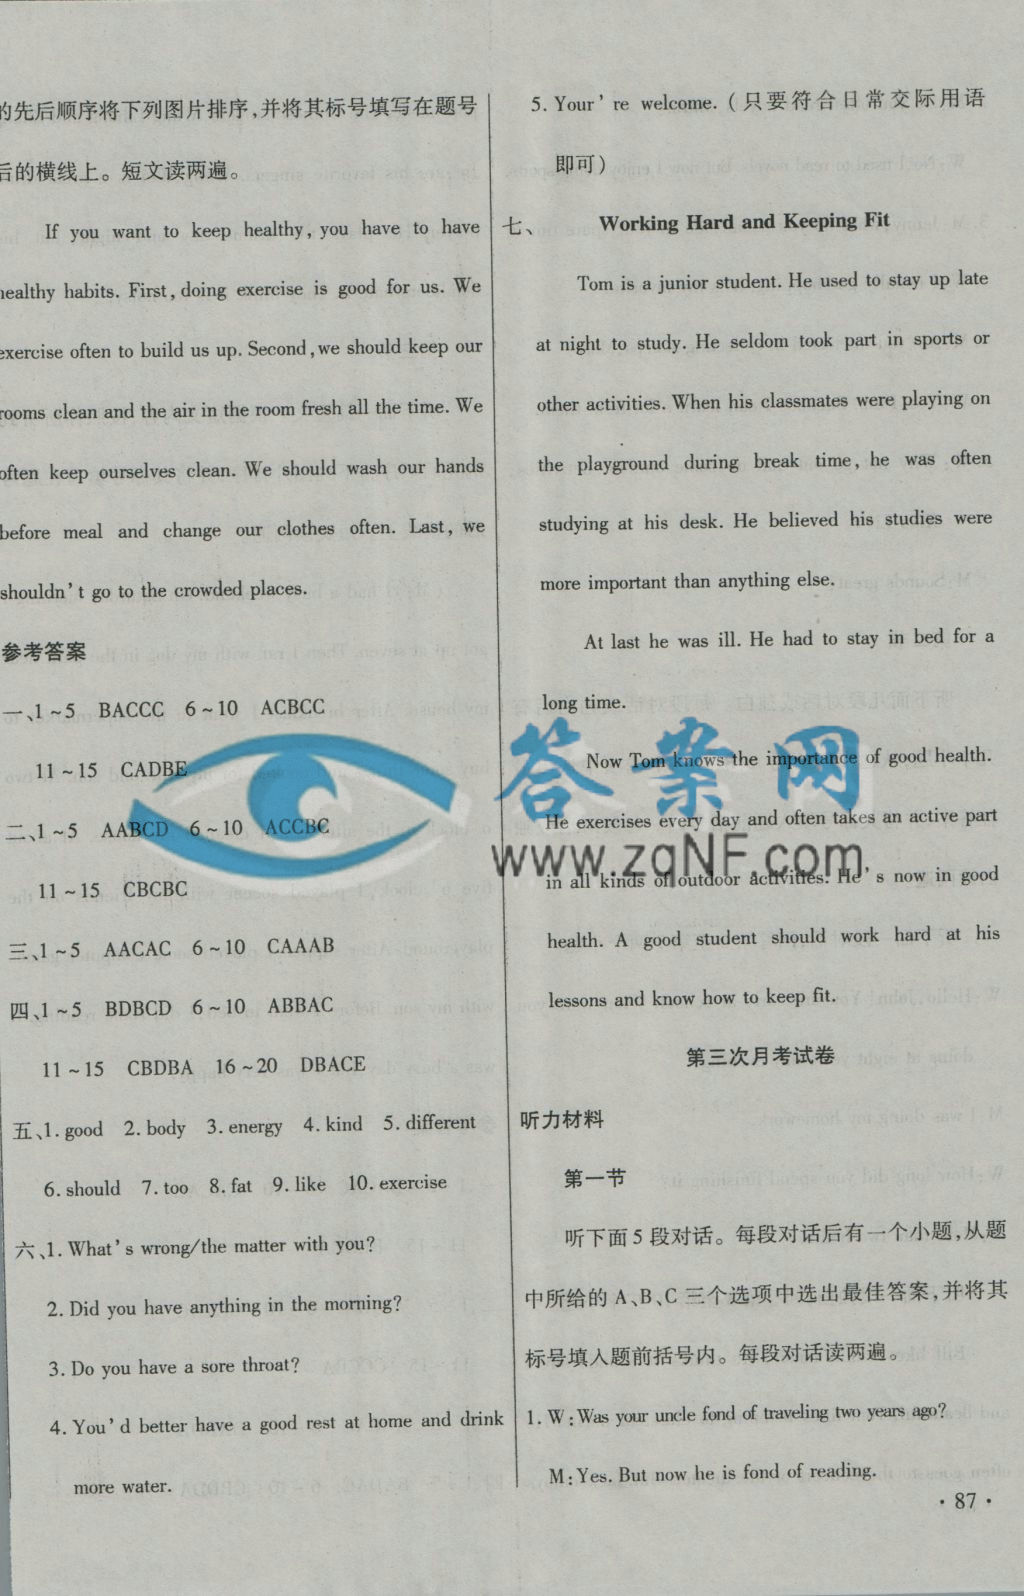 的先后顺序将下列图片排序,并将其标号填写在题号
后的横线上。短文读两遍。
If you want to keep healthy, you have to have
healthy habits. First, doing exercise is good for us. We
exercise often to build us up. Second, we should keep our
rooms clean and the air in the room fresh all the time. We
often keep ourselves clean. We should wash our hands
before meal and change our clothes often. Last, we
shouldn't go to the crowded places.
参考答案
一、1~5 BACCC 6~10 ACBCC
11~15 CADBE
二、1~5 AABCD 6~10 ACCBC
11~15 CBCBC
三、1~5 AACAC 6~10 CAAAB
四、1~5 BDBCD 6~10 ABBAC
11~15 CBDBA 16~20 DBACE
五、1. good 2. body 3. energy 4. kind 5. different
6. should 7. too 8. fat 9. like 10. exercise
六、1. What's wrong/the matter with you?
2. Did you have anything in the morning?
3. Do you have a sore throat?
4. You'd better have a good rest at home and drink
more water.
5. Your're welcome. (只要符合日常交际用语
即可)
七、 Working Hard and Keeping Fit
Tom is a junior student. He used to stay up late
at night to study. He seldom took part in sports or
other activities. When his classmates were playing on
the playground during break time, he was often
studying at his desk. He believed his studies were
more important than anything else.
At last he was ill. He had to stay in bed for a
long time.
Now Tom knows the importance of good health.
He exercises every day and often takes an active part
in all kinds of outdoor activities. He's now in good
health. A good student should work hard at his
lessons and know how to keep fit.
第三次月考试卷
听力材料
第一节
听下面 5 段对话。每段对话后有一个小题,从题
中所给的 A、B、C 三个选项中选出最佳答案,并将其
标号填入题前括号内。每段对话读两遍。
1. W: Was your uncle fond of traveling two years ago?
M: Yes. But now he is fond of reading.
· 87 ·
答案网
www.zqNF.com